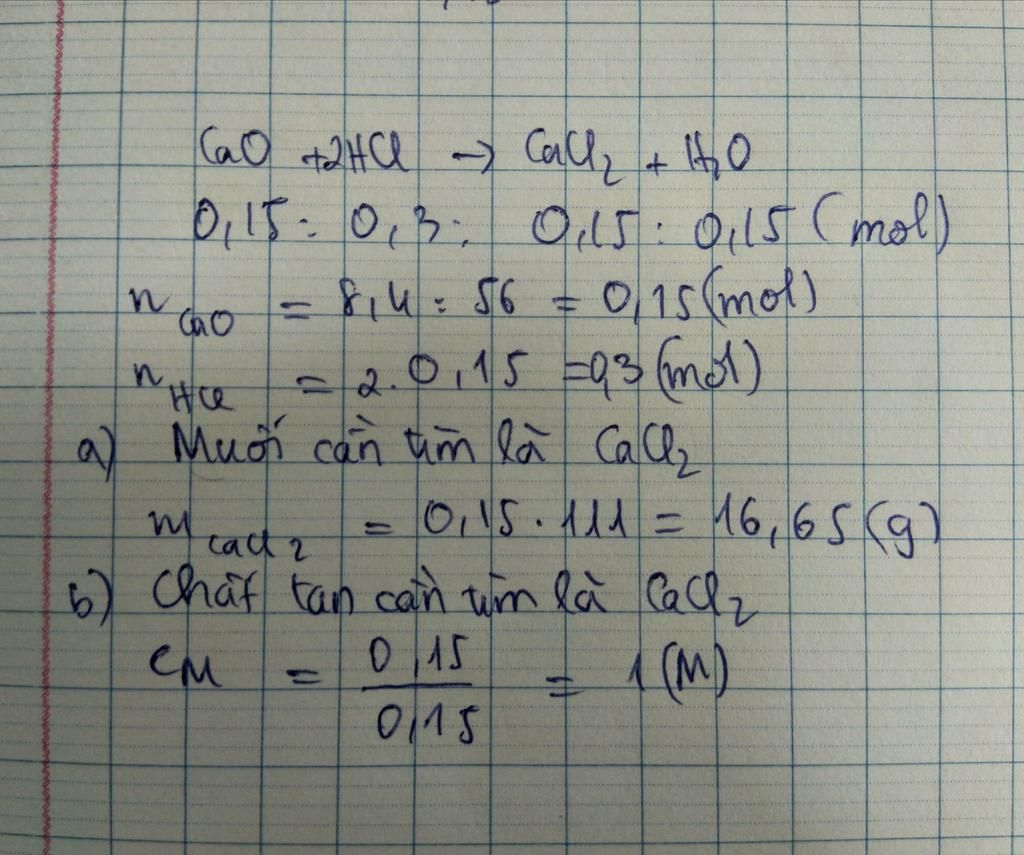 CaO + 2HCl → CaCl₂ + H₂O
0,15 : 0,3 : 0,15 : 0,15 (mol)
n CaO = 8,4 : 56 = 0,15 (mol)
n HCl = 2.0,15 = 0,3 (mol)
a) Muối cần tìm là CaCl₂
m CaCl₂ = 0,15.111 = 16,65 (g)
b) Chất tan cần tìm là CaCl₂
CM = 0,15 / 0,15 = 1 (M)